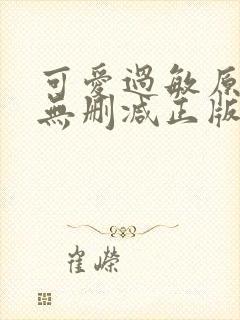 可愛過敏原
無刪減正版
崔嶸